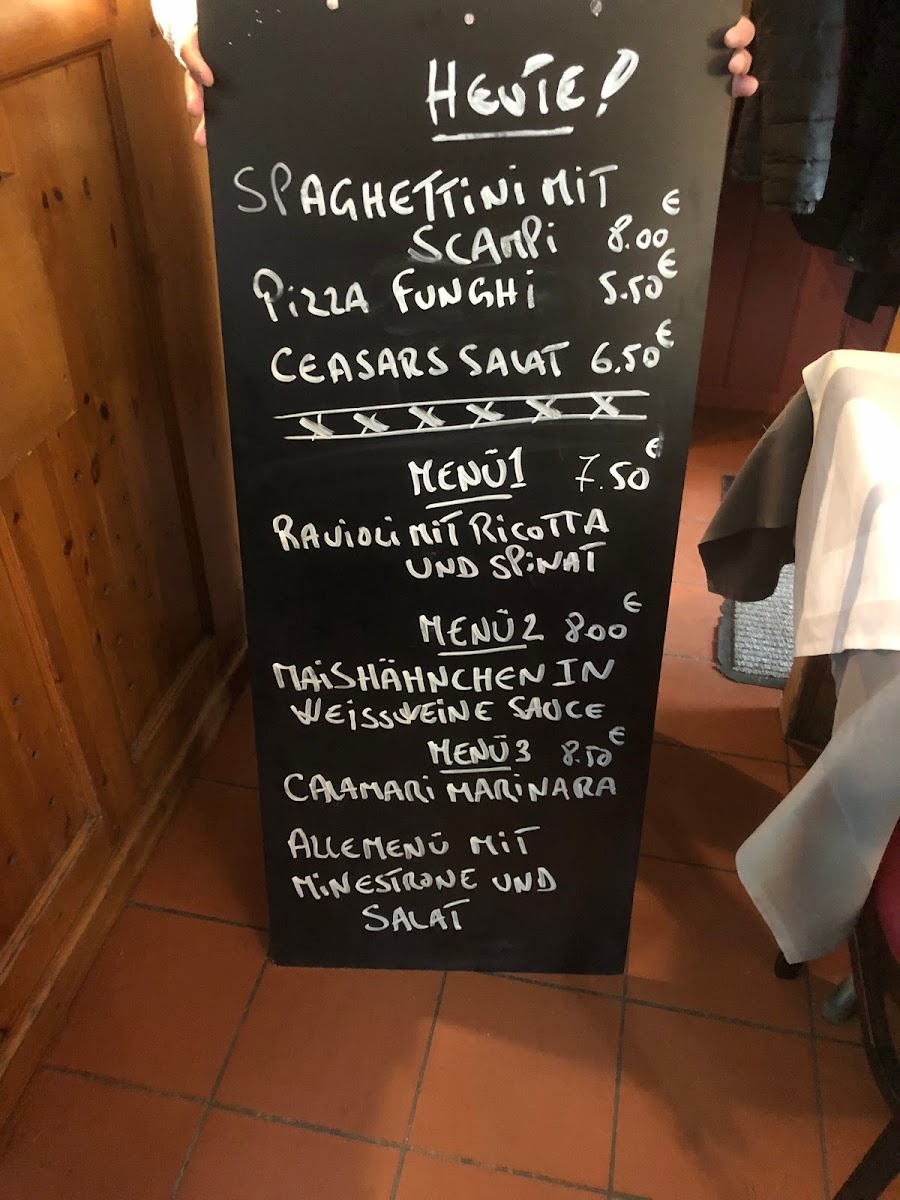 HEUTE!
SPAGHETTINI MIT
SCAMPI 8.00€
PIZZA FUNGHI 5.50€
CEASARS SALAT 6.50€
MENÜ1 7.50€
RAVIOLI MIT RICOTTA
UND SPINAT
MENÜ2 8.00€
MAISHÄHNCHEN IN
WEISSWEINE SAUCE
MENÜ3 8.50€
CALAMARI MARINARA
ALLE MENÜ MIT
MINESTRONE UND
SALAT